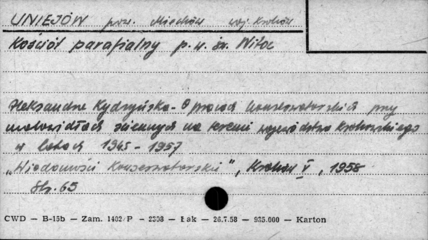 UNIEJÓW pow. Miechów woj. Kraków
Kościół parafialny p.w. św. Wita
Aleksandra Kydryńska - O pracach konserwatorskich przy
malowidłach ściennych na terenie województwa krakowskiego
w latach 1945 - 1957
„Wiadomości Konserwatorskie", Kraków I, 1958
Str. 65
CWD — B-15b — Zam. 1402/P — 2338 — Łak — 26.7.58 — 925.000 — Karton